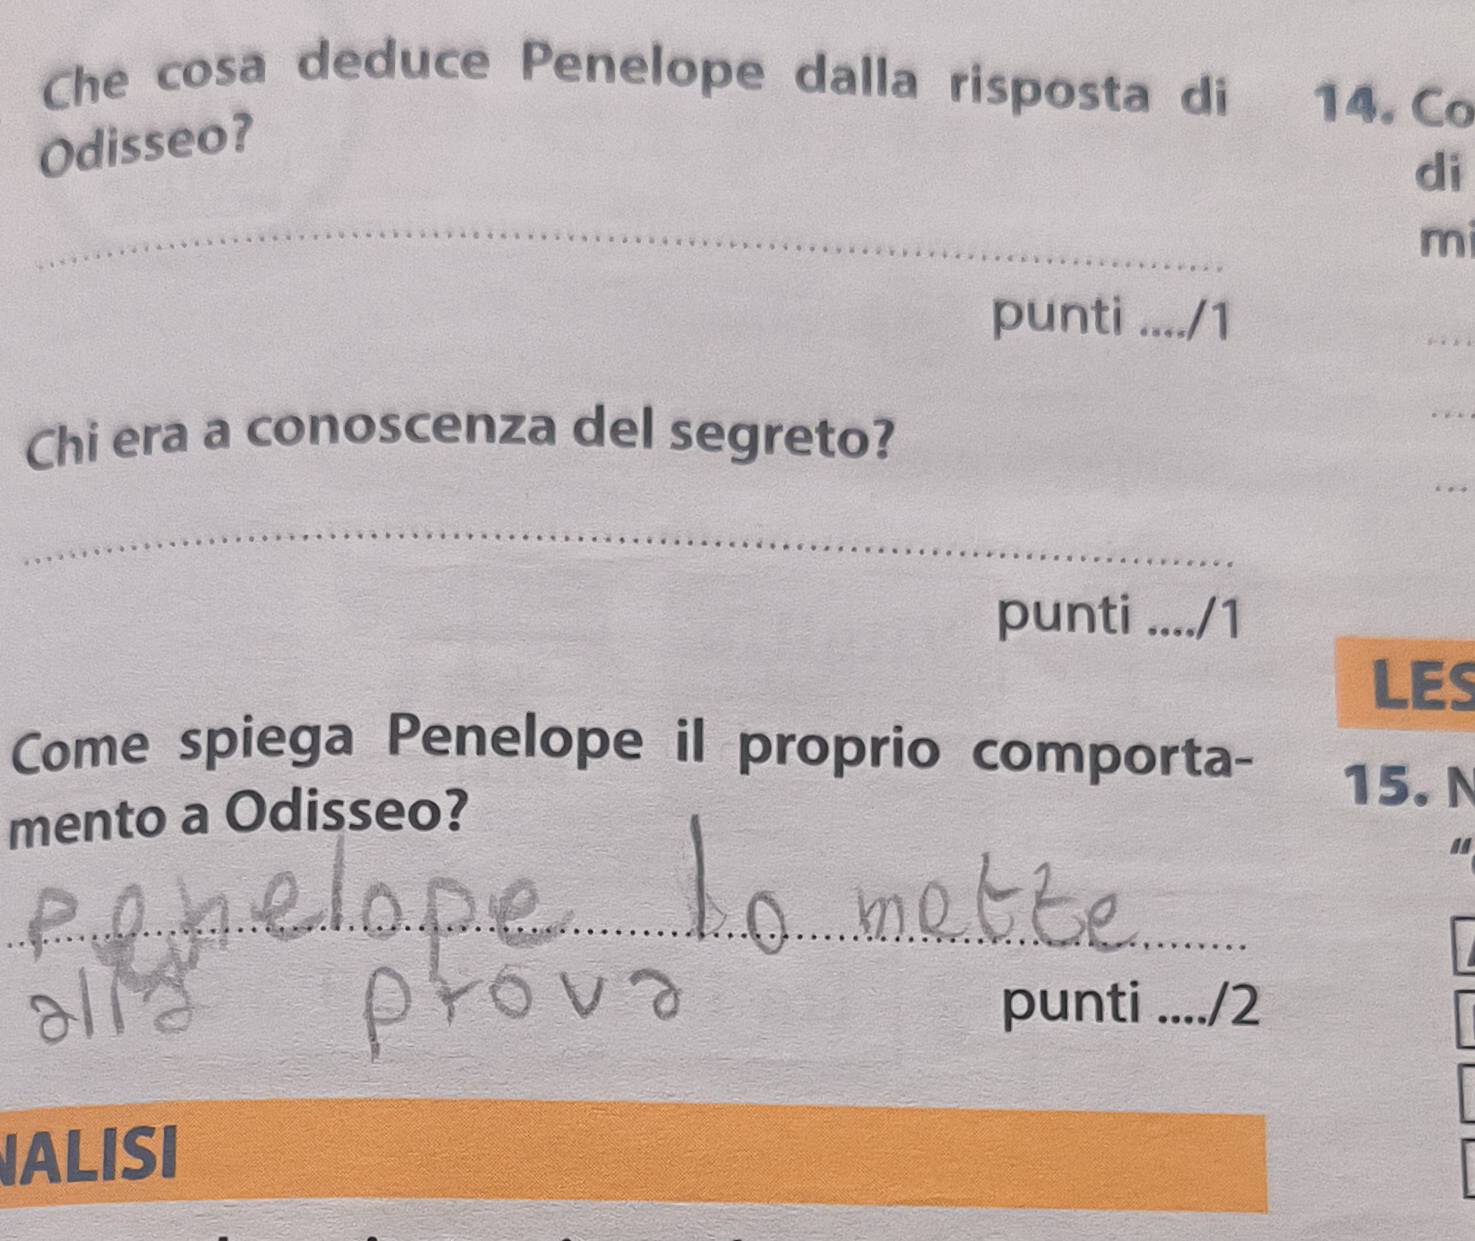 Che cosa deduce Penelope dalla risposta di
Odisseo?
punti ..../1
Chi era a conoscenza del segreto?
punti ..../1
Come spiega Penelope il proprio comporta-
mento a Odisseo?
penelope lo mette
alla prova
punti ..../2
NALISI
14. Co
di
mi
LES
15. N
"